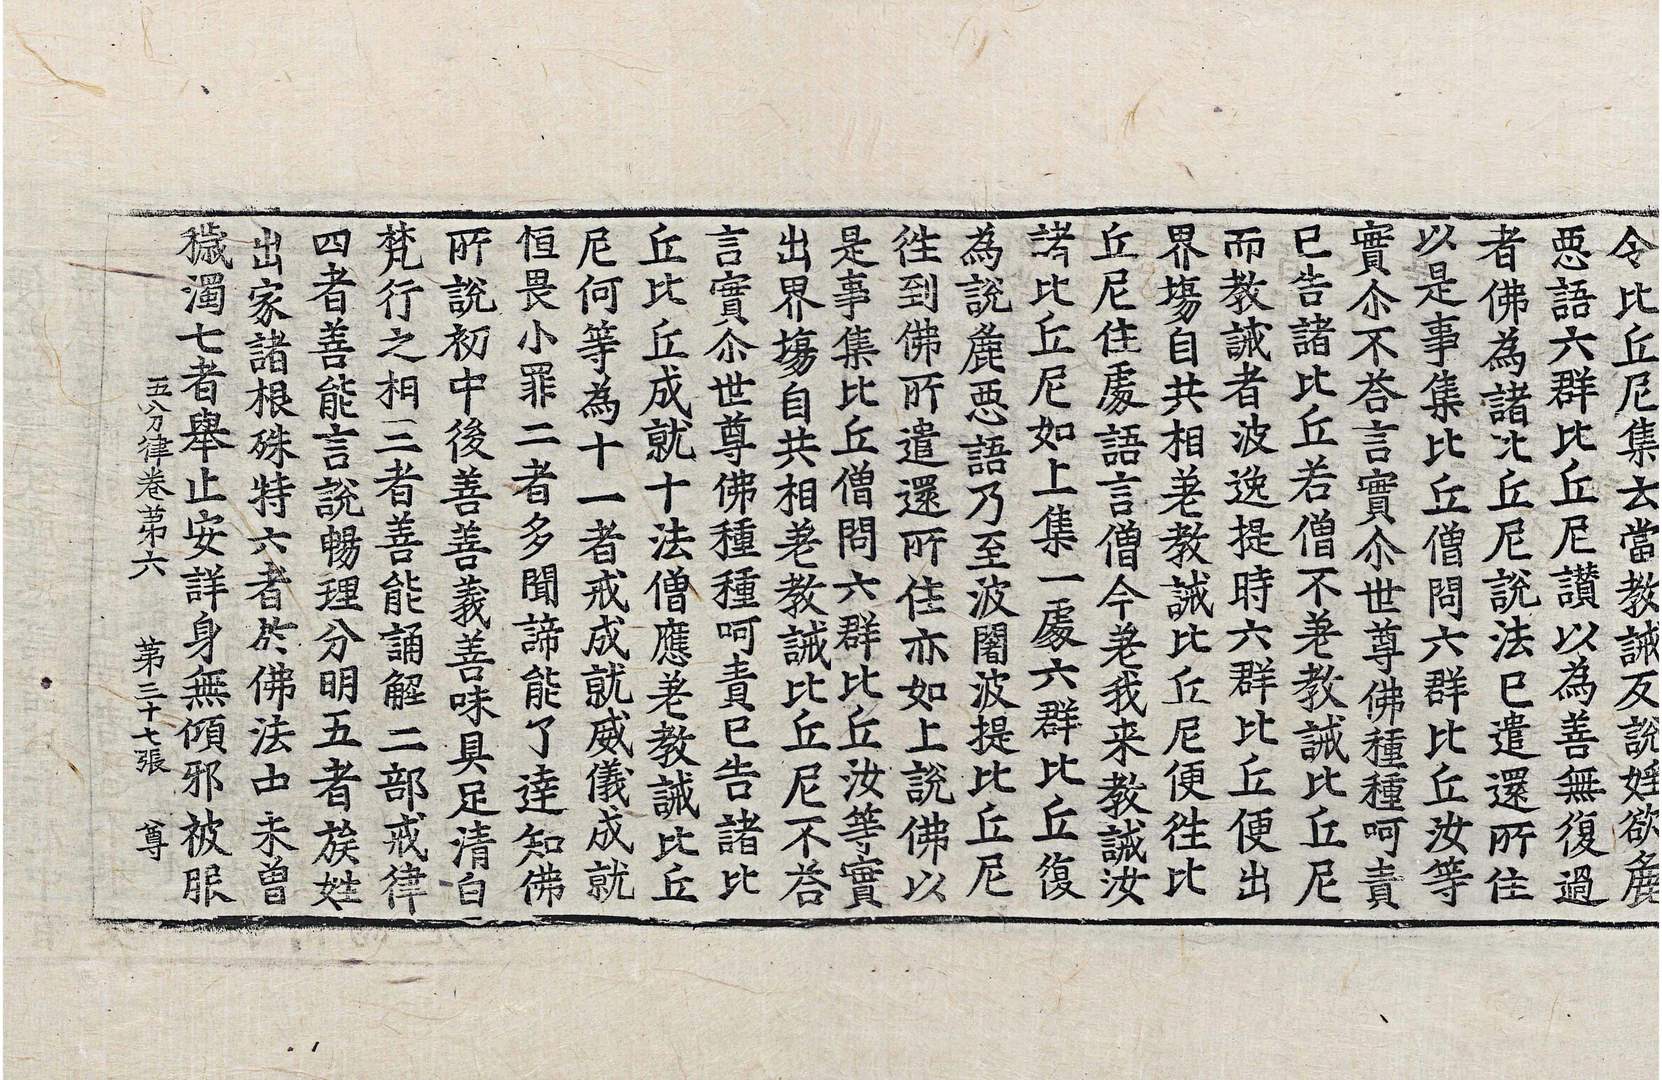 令比丘尼集云當教誡反說婬欲麁
惡語六群比丘尼讃以為善無復過
者佛為諸比丘尼說法已遣還所住
以是事集比丘僧問六群比丘汝等
實尒不荅言實尒世尊佛種種呵責
已告諸比丘若僧不差教誡比丘尼
而教誡者波逸提時六群比丘便出
界場自共相差教誡比丘尼便往比
丘尼住處語言僧今差我来教誡汝
諸比丘尼如上集一處六群比丘復
為說麁惡語乃至波闍波提比丘尼
往到佛所遣還所住亦如上說佛以
是事集比丘僧問六群比丘汝等實
出界場自共相差教誡比丘尼不荅
言實尒世尊佛種種呵責已告諸比
丘比丘成就十法僧應差教誡比丘
尼何等為十一者戒成就威儀成就
恒畏小罪二者多聞諦能了達知佛
所說初中後善善義善味具足清白
梵行之相三者善能誦解二部戒律
四者善能言說暢理分明五者族姓
出家諸根殊特六者於佛法中未曾
穢濁七者舉止安詳身無傾邪被服
五分律卷第六　第三十七張　尊